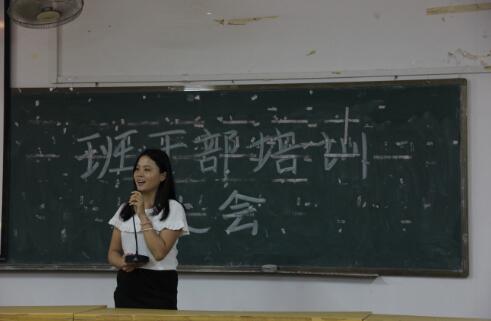 班干部培训
大会